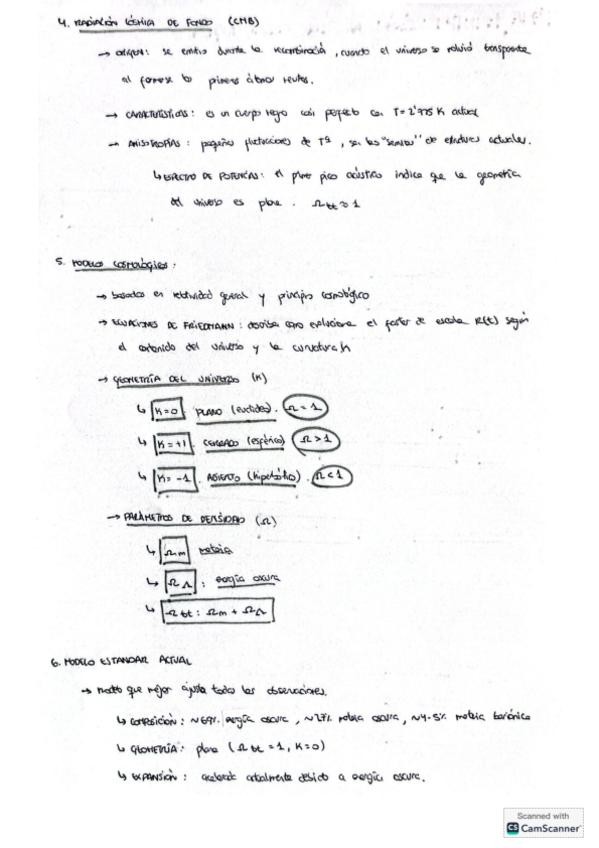 4. RADIACIÓN CÓSMICA DE FONDO (CMB)
→ ORIGEN: se emitió durante la recombinación, cuando el universo se volvió transparente
al formarse los primeros átomos neutros.
→ CARACTERÍSTICAS: es un cuerpo negro casi perfecto con T = 2'725 K actual
→ ANISOTROPÍAS: pequeñas fluctuaciones de Tª, son las "semillas" de estructuras actuales.
↳ ESPECTRO DE POTENCIAS: el primer pico acústico indica que la geometría
del universo es plana. Ωtot ≈ 1
5. MODELOS COSMOLÓGICOS:
→ basados en relatividad general y principio cosmológico
→ ECUACIONES DE FRIEDMANN: describe como evoluciona el factor de escala R(t) según
el contenido del universo y la curvatura K
→ GEOMETRÍA DEL UNIVERSO (K)
↳ K=0 PLANO (euclídeo). Ω = 1
↳ K=+1. CERRADO (esférico) Ω > 1
↳ K= -1. ABIERTO (hiperbólico). Ω < 1
→ PARÁMETROS DE DENSIDAD (Ω)
↳ Ωm materia
↳ ΩΛ : energía oscura
↳ Ωtot : Ωm + ΩΛ
6. MODELO ESTANDAR ACTUAL
→ modelo que mejor ajusta todas las observaciones.
↳ COMPOSICIÓN: energía oscura, ~27% materia oscura, ~4-5% materia bariónica
↳ GEOMETRÍA: plana (Ωtot = 1, K=0)
↳ EXPANSIÓN: acelerada actualmente debido a energía oscura.
Scanned with
CS CamScanner